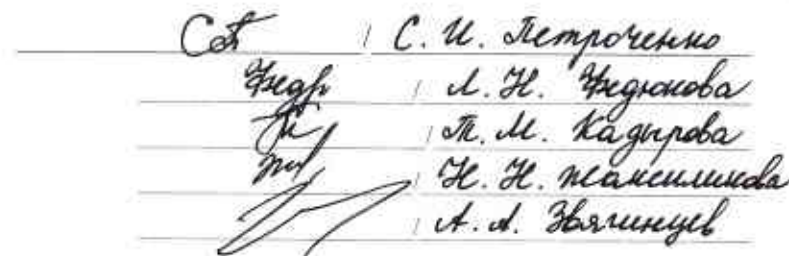 / С. И. Петроченко
/ Л. Н. Федюкова
/ Т. М. Кадырова
/ Н. Н.
/ А. А. Звягинцев